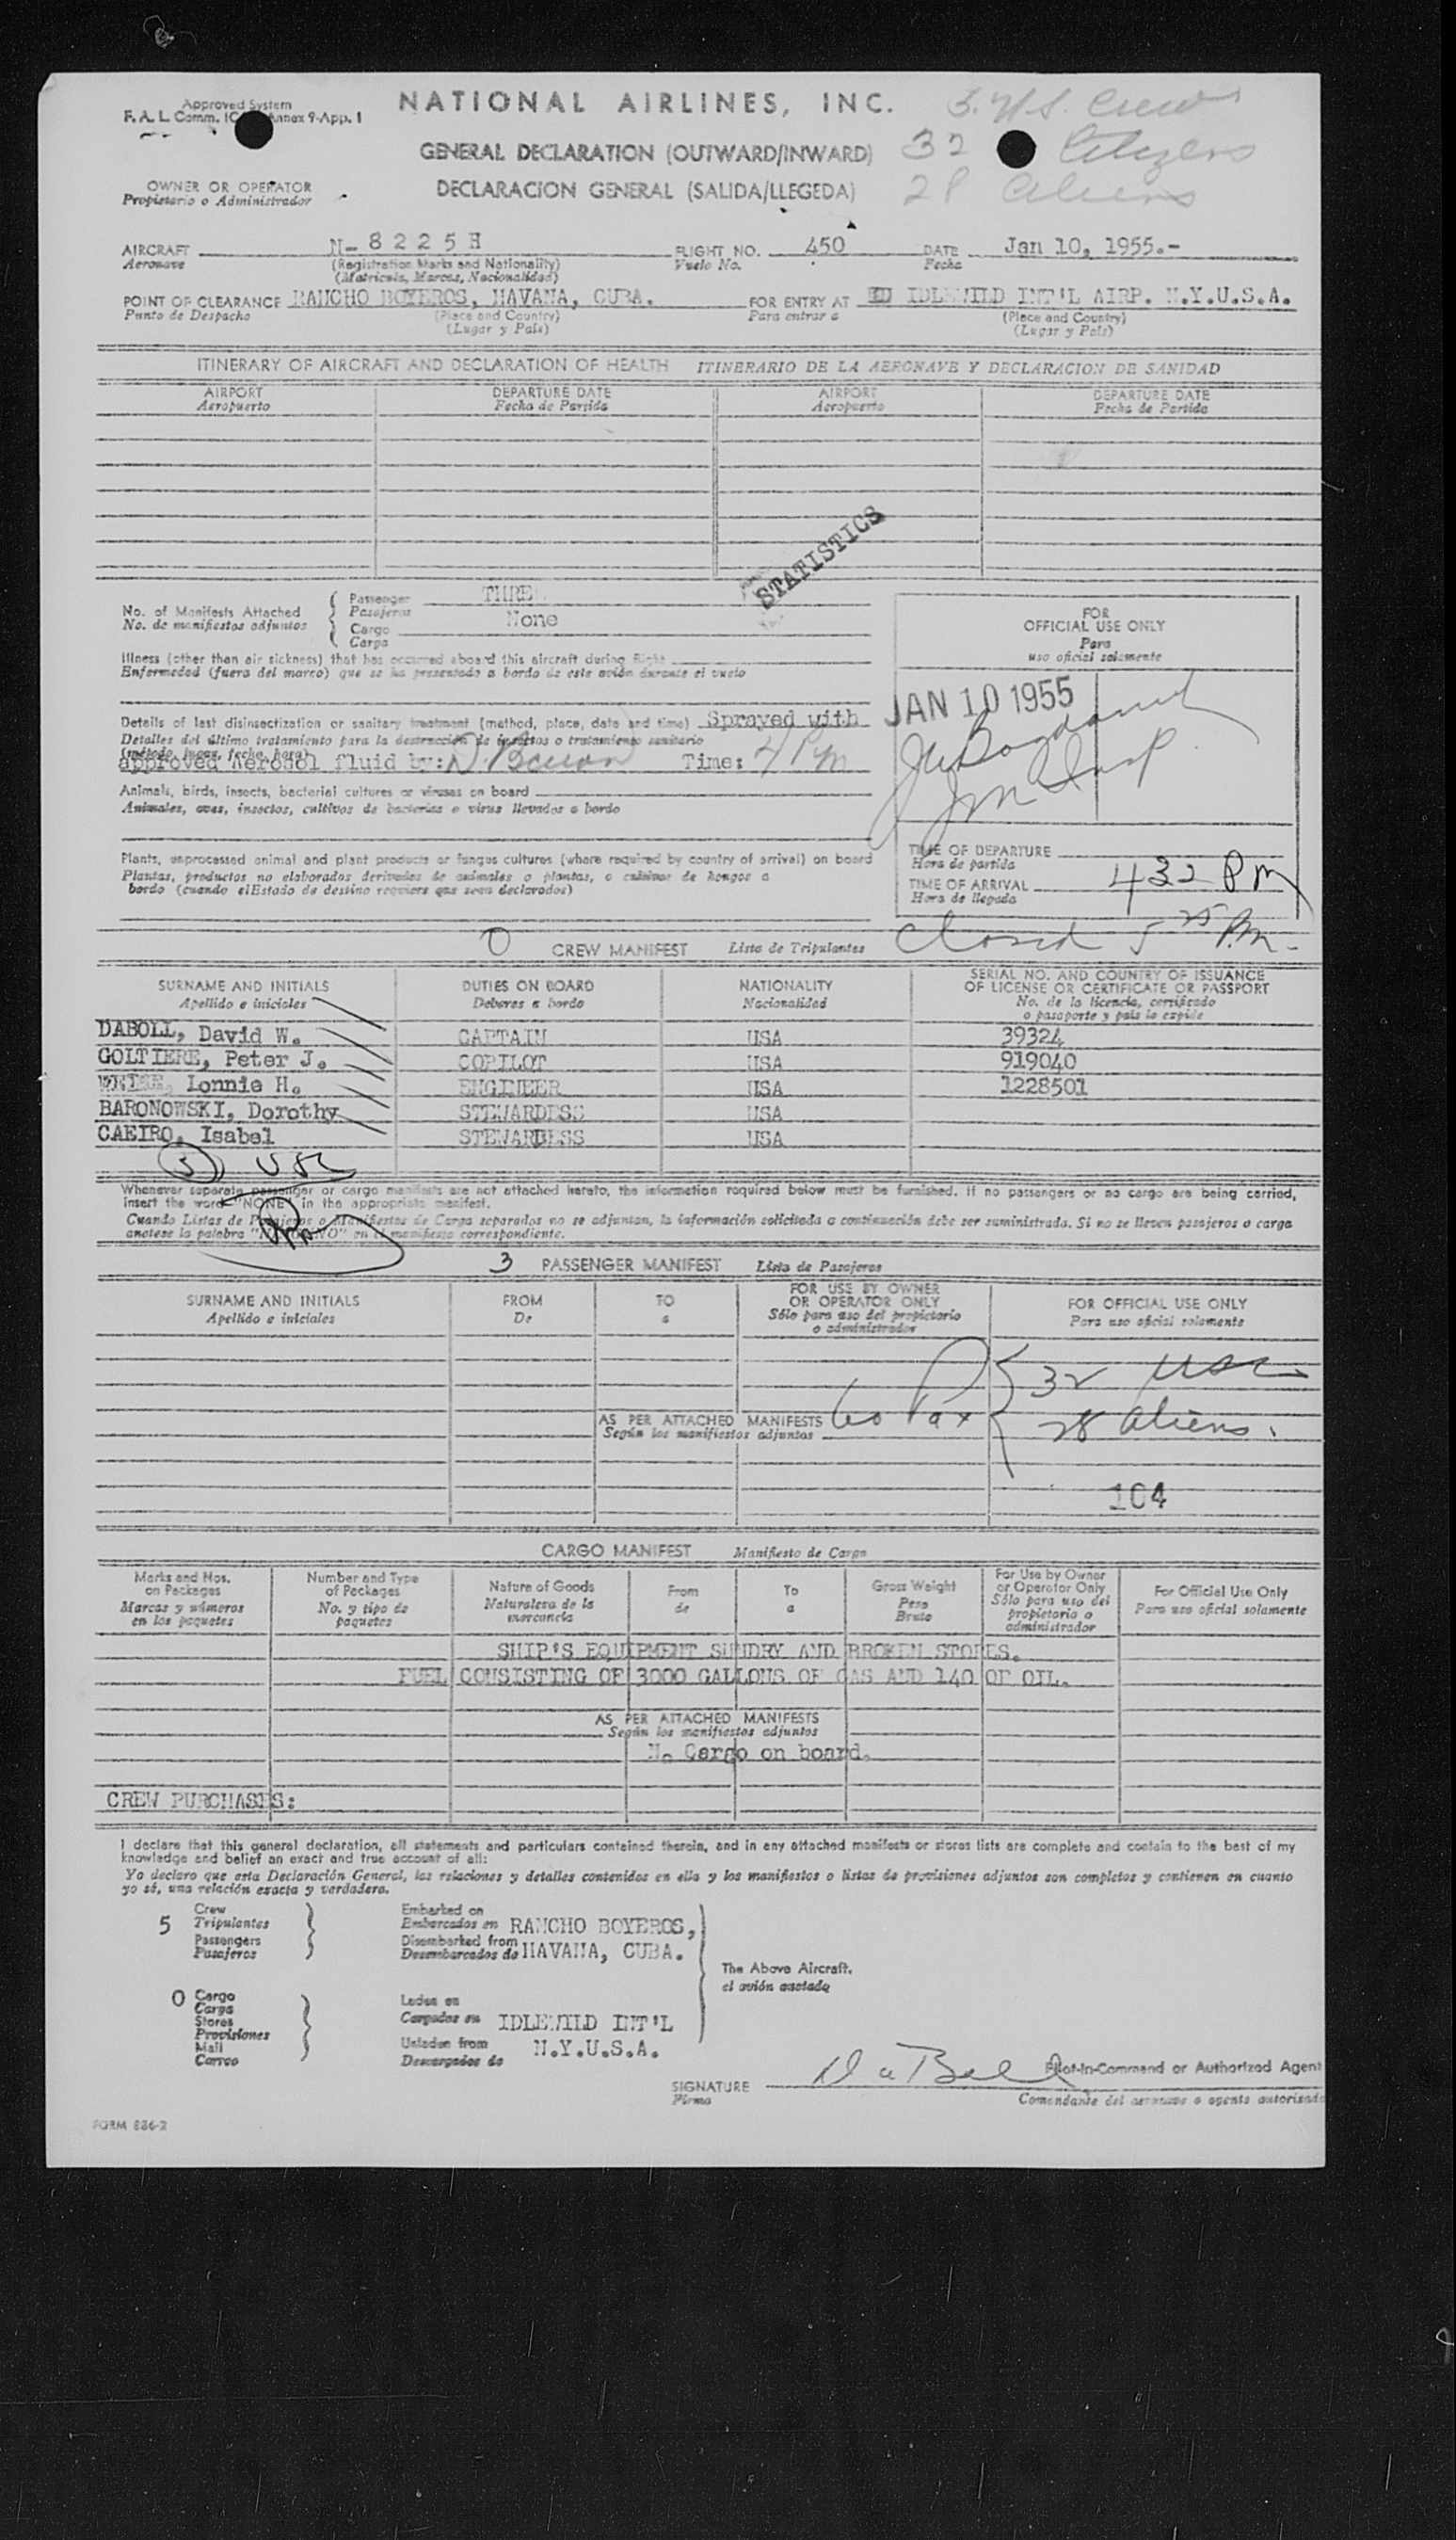 Approved System
F. A. L. Comm. Annex 9-App. 1
NATIONAL AIRLINES, INC.
5 U.S. Crew
GENERAL DECLARATION (OUTWARD/INWARD)
32 Citizens
OWNER OR OPERATOR
Propietario o Administrador
DECLARACION GENERAL (SALIDA/LLEGEDA)
28 Aliens
AIRCRAFT N-8225H FLIGHT NO. 450 DATE Jan 10, 1955.-
Aeronave (Registration Marks and Nationality) Vuelo No. Fecha
(Matricula, Marcas, Nacionalidad)
POINT OF CLEARANCE RANCHO BOYEROS, HAVANA, CUBA. FOR ENTRY AT IDLEWILD INT'L AIRP. N.Y.U.S.A.
Punto de Despacho (Place and Country) Para entrar a (Place and Country)
(Lugar y País) (Lugar y País)
ITINERARY OF AIRCRAFT AND DECLARATION OF HEALTH ITINERARIO DE LA AERONAVE Y DECLARACION DE SANIDAD
AIRPORT DEPARTURE DATE AIRPORT DEPARTURE DATE
Aeropuerto Fecha de Partida Aeropuerto Fecha de Partida
STATISTICS
No. of Manifests Attached
No. de manifiestos adjuntos
Passenger THREE
Pasajeros
Cargo None
Carga
FOR
OFFICIAL USE ONLY
Para
uso oficial solamente
Illness (other than air sickness) that has occurred aboard this aircraft during flight
Enfermedad (fuera del mareo) que se ha presentado a bordo de este avión durante el vuelo
JAN 10 1955
Details of last disinsectization or sanitary treatment (method, place, date and time) Sprayed with
Detalles del último tratamiento para la destrucción de insectos o tratamiento sanitario
(método, lugar, fecha, hora)
approved Aerosol fluid by: Time: 4 Pm
Animals, birds, insects, bacterial cultures or viruses on board
Animales, aves, insectos, cultivos de bacterias o virus llevados a bordo
Plants, unprocessed animal and plant products or fungus cultures (where required by country of arrival) on board
Plantas, productos no elaborados derivados de animales o plantas, o cultivos de hongos a
bordo (cuando el Estado de destino requiera que sean declarados)
TIME OF DEPARTURE
Hora de partida
TIME OF ARRIVAL 432 Pm
Hora de llegada
Closed 5 25 Pm.
0 CREW MANIFEST Lista de Tripulantes
SURNAME AND INITIALS DUTIES ON BOARD NATIONALITY SERIAL NO. AND COUNTRY OF ISSUANCE
OF LICENSE OR CERTIFICATE OR PASSPORT
Apellido e iniciales Deberes a bordo Nacionalidad No. de la licencia, certificado
o pasaporte y país lo expide
DABOLL, David W. CAPTAIN USA 39324
GOLTIERE, Peter J. COPILOT USA 919040
Lonnie H. ENGINEER USA 1228501
BARONOWSKI, Dorothy STEWARDESS USA
CAEIRO, Isabel STEWARDESS USA
5 USC
Whenever separate passenger or cargo manifests are not attached hereto, the information required below must be furnished. If no passengers or no cargo are being carried,
insert the word "NONE" in the appropriate manifest.
Cuando Listas de Pasajeros o Manifiestos de Carga separados no se adjuntan, la información solicitada a continuación debe ser suministrada. Si no se llevan pasajeros o carga
anotese la palabra en el manifiesto correspondiente.
3 PASSENGER MANIFEST Lista de Pasajeros
SURNAME AND INITIALS FROM TO FOR USE BY OWNER
OR OPERATOR ONLY FOR OFFICIAL USE ONLY
Apellido e iniciales De a Sólo para uso del propietario
o administrador Para uso oficial solamente
32 USC
AS PER ATTACHED MANIFESTS 60 Pax
Según los manifiestos adjuntos
28 aliens.
104
CARGO MANIFEST Manifiesto de Carga
Marks and Nos.
on Packages
Marcas y números
en los paquetes
Number and Type
of Packages
No. y tipo de
paquetes
Nature of Goods
Naturaleza de la
mercancía
From
de
To
a
Gross Weight
Peso
Bruto
For Use by Owner
or Operator Only
Sólo para uso del
propietario o
administrador
For Official Use Only
Para uso oficial solamente
SHIP'S EQUIPMENT SUNDRY AND BROKEN STORES.
FUEL CONSISTING OF 3000 GALLONS OF GAS AND 140 OF OIL.
AS PER ATTACHED MANIFESTS
Según los manifiestos adjuntos
No Cargo on board.
CREW PURCHASES:
I declare that this general declaration, all statements and particulars contained therein, and in any attached manifests or stores lists are complete and contain to the best of my
knowledge and belief an exact and true account of all:
Yo declaro que esta Declaración General, las relaciones y detalles contenidos en ella y los manifiestos o listas de provisiones adjuntos son completos y contienen en cuanto
yo sé, una relación exacta y verdadera.
5 Crew
Tripulantes
Passengers
Pasajeros
Embarked on
Embarcados en RANCHO BOYEROS,
Disembarked from
Desembarcados de HAVANA, CUBA.
The Above Aircraft.
el avión anotado
0 Cargo
Carga
Stores
Provisiones
Mail
Correo
Laden on
Cargados en IDLEWILD INT'L
Unladen from N.Y.U.S.A.
Descargados de
SIGNATURE Pilot-In-Command or Authorized Agent
Firma Comandante del aeronave o agente autorizado
FORM 886-2